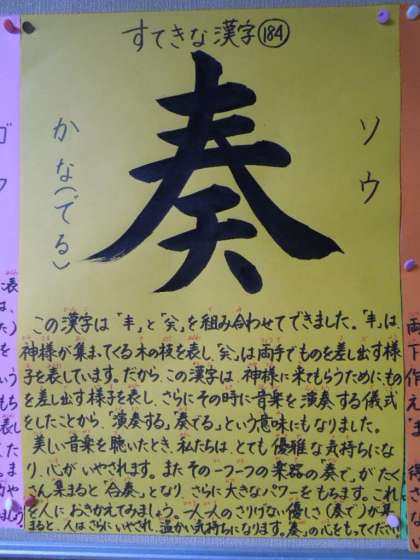 すてきな漢字184
奏
ソウ
かな(でる)
この漢字は「丰」と「𡗗」を組み合わせてできました。「丰」は、
神様が集まてくる木の枝を表し、「𡗗」は両手でものを差し出す様
子を表しています。だから、この漢字は神様に来てもらうためにもの
を差し出す様子を表し、さらにその時に音楽を演奏する儀式
をしたことから、「演奏する」「奏でる」という意味にもなりました。
美しい音楽を聴いたとき、私たちは、とても優雅な気持ちにな
り、心がいやされます。またその一つ一つの楽器の奏で、がたく
さん集まると「合奏」となり、さらに大きなパワーをもちます。これ
を人におきかえてみましょう。一人一人のさりげない優しさ(奏で)が集
まると、人はさらにいやされ、温かい気持ちになります。「奏」の心をもってください